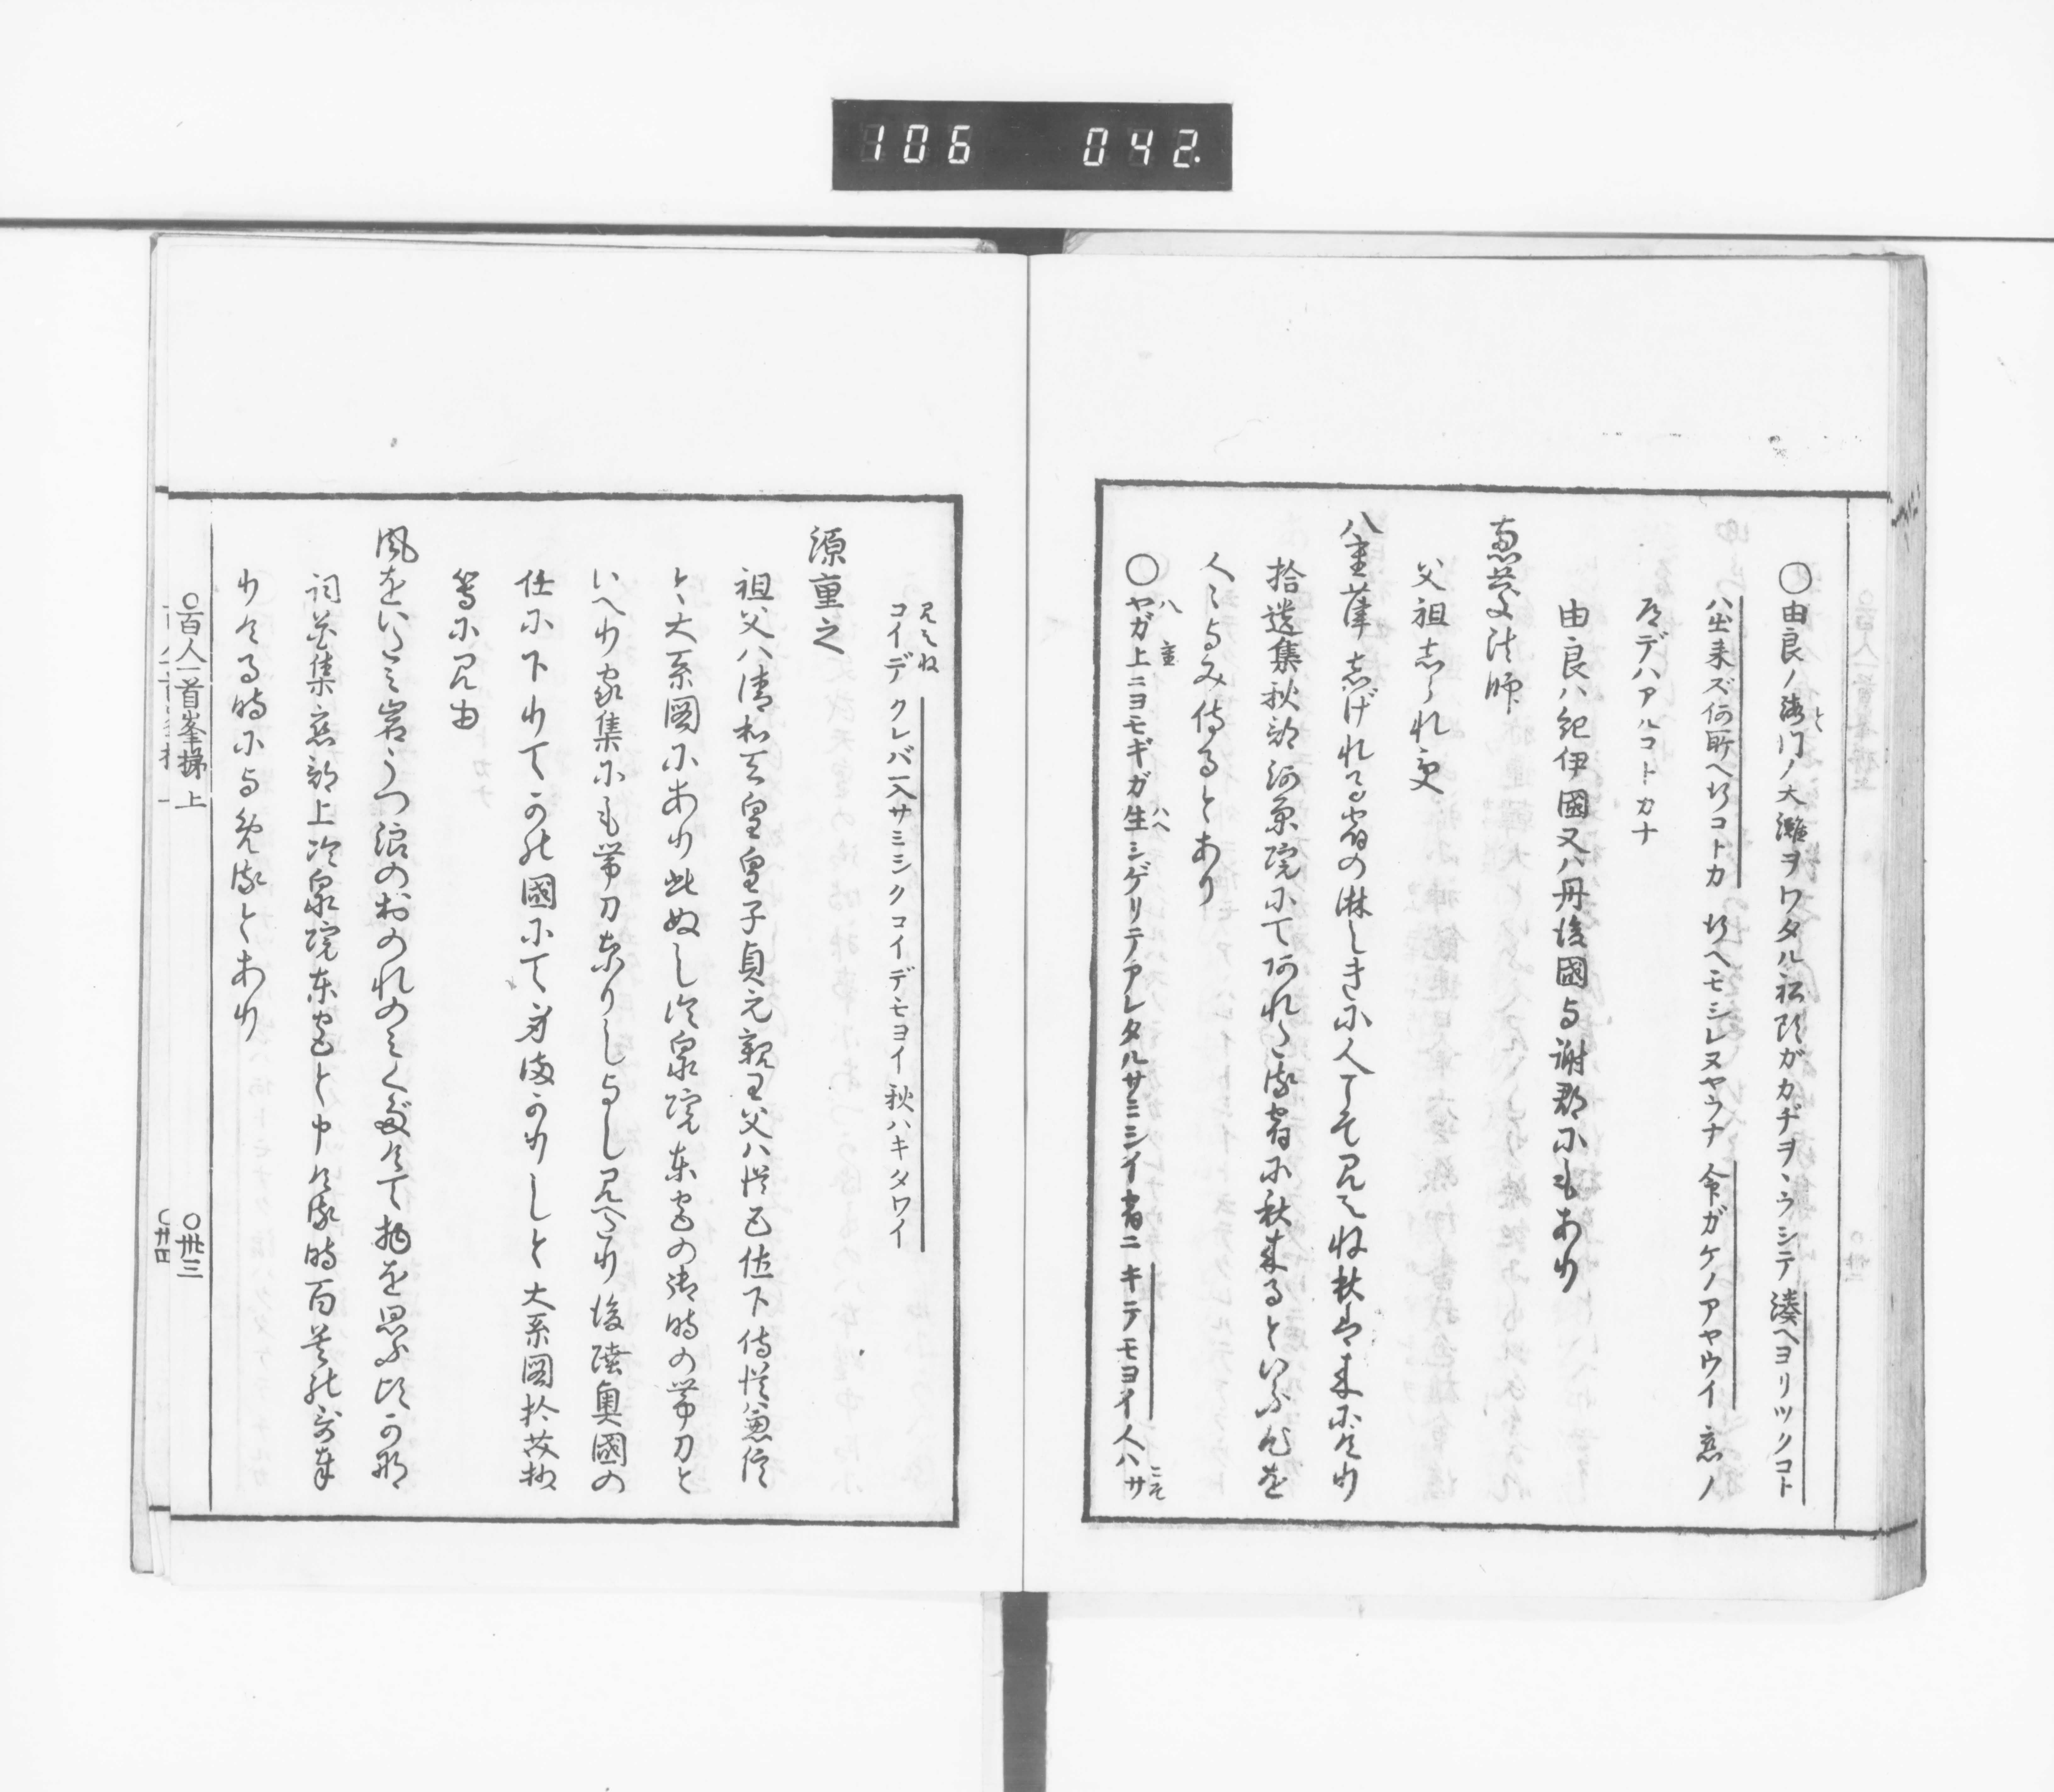 106 042.
○由良ノ海門ノ大灘ヲワタル船頭ガカヂヲヽウシテ湊ヘヨリツクコト
ハ出来ズ何所ヘ行コトカ 行ヘモシレヌヤウナ 命ガケノアヤウイ 恋ノ
道デハアルコトカナ
由良ハ紀伊國又ハ丹後國与謝郡にもあり
恵慶法師
父祖志られ
八重葎志げれる宿の淋しきに人こそ見えね秋は来にけり
拾遺集秋部河原院にてあれたる宿に秋来るといふ心を
人々よみ侍るとあり
○ヤガ上ニヨモギガ生シゲリテアレタルサミシイ宿ニ キテモヨイ人ハサ
八重
ハヘ
こそ
見えね
コイデ クレバ一入サミシクコイデモヨイ 秋ハキタワイ
源重之
祖父ハ清和天皇皇子貞元親王父ハ従五位下侍従兼信
と大系図にあり此ぬし冷泉院東宮の御時の帯刀と
いへり家集にも帯刀なりしよし見へたり後陸奥國の
任に下りてかの國にて身まかりしと大系図
等に見ゆ
風をいたみ岩うつ浪のおのれのみくだけて物を思ふ頃かな
詞花集恋部上冷泉院東宮と申ける時百首の哥奉
りける時によめるとあり
○百人一首峯梯 上
○卅三